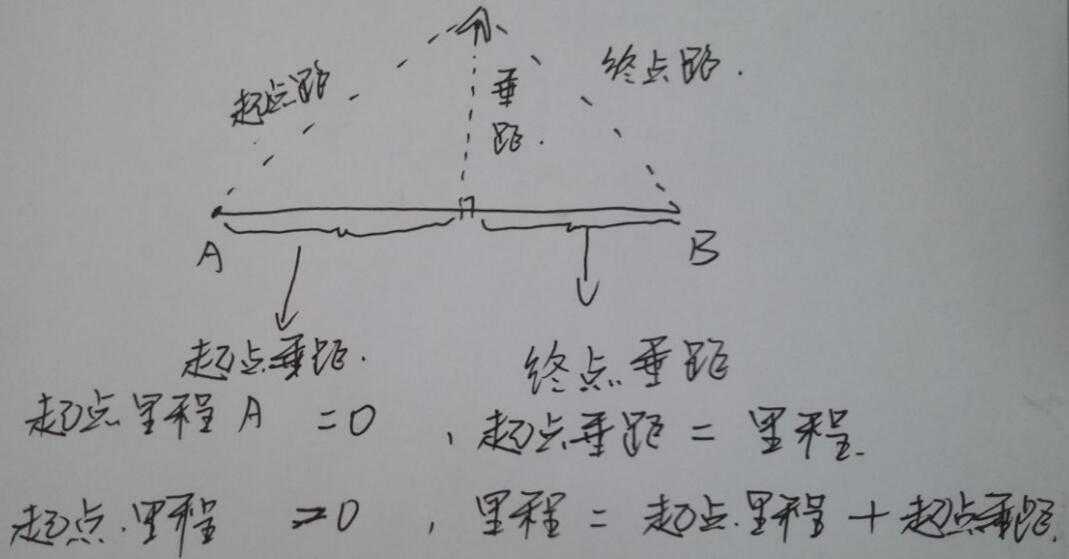 起点距
垂距.
终点距.
A
B
起点垂距.
终点垂距
起点里程 A =0 , 起点垂距 = 里程.
起点.里程 ≠0 , 里程 = 起点.里程 + 起点垂距.